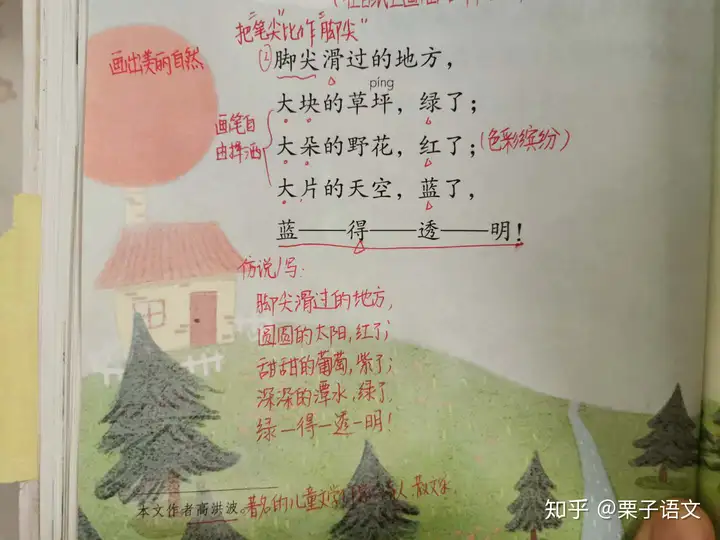 把"笔尖"比作"脚尖"
画出美丽自然
②脚尖滑过的地方，
píng
大块的草坪，绿了；
画笔自
由挥洒
大朵的野花，红了；(色彩缤纷)
大片的天空，蓝了，
蓝——得——透——明！
仿说/写：
脚尖滑过的地方，
圆圆的太阳，红了；
甜甜的葡萄，紫了；
深深的潭水，绿了，
绿—得—透—明！
本文作者高洪波。著名的儿童文学 人 散文家
知乎 @栗子语文